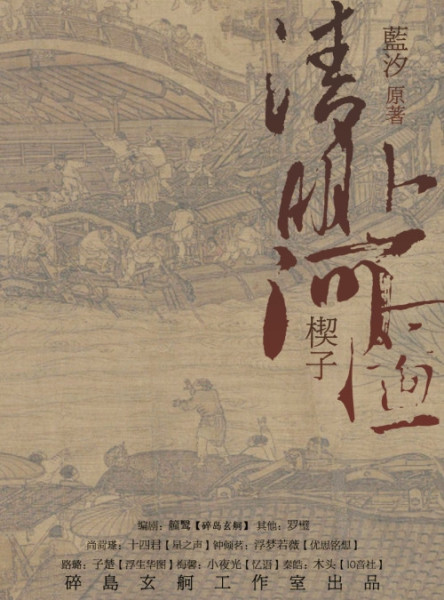 藍汐 原著
清明上河
楔子
编剧：【碎岛玄舸】 其他：罗
十四君【星之声】 浮梦若薇【优思铭想】
路璐：子楚【浮生华图】梅馨：小夜光【忆游】秦皓：木头【IO音社】
碎島玄舸工作室出品